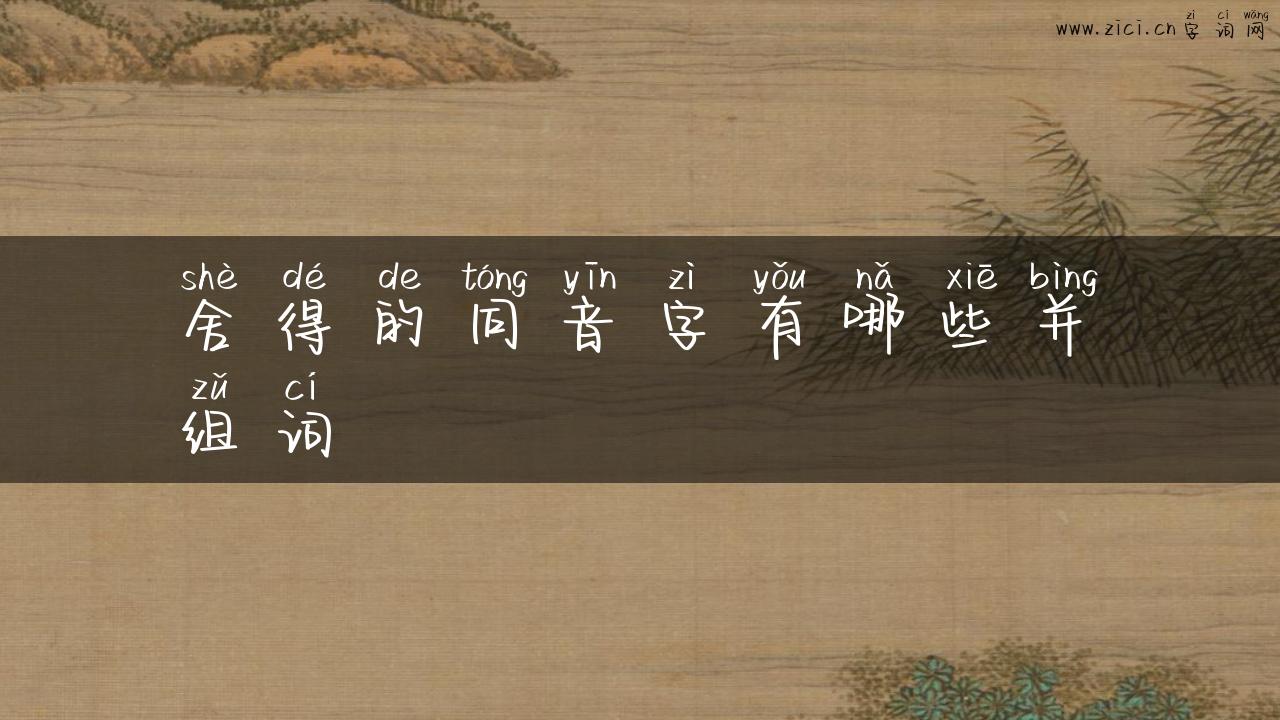 zì cí wǎng
www.zici.cn 字词网
shè dé de tóng yīn zì yǒu nǎ xiē bìng
舍得的同音字有哪些并
zǔ cí
组词